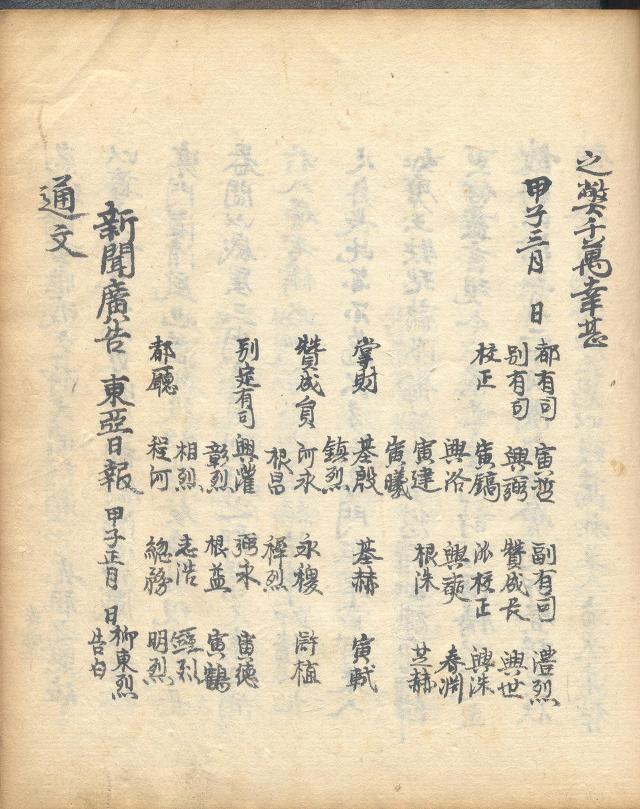 之弊千萬幸甚
甲子三月 日
都有司 寅哲 副有司 澧烈
別有司 興弼 贊成長 興世
校正 寅鎬 校正 興洙
興洛 興奭 春淵
寅建 根洙 芝赫
寅曦
掌財 基殷 基赫 寅軾
鎮烈
贊成員 河永 永稷 植
根昌 烈
別定有司 興 永 寅德
彰烈 根益 寅鶴
相烈 志浩 烈
都廳 程河 總務 明烈
新聞廣告 東亞日報 甲子正月 日 柳東烈 告白
通文